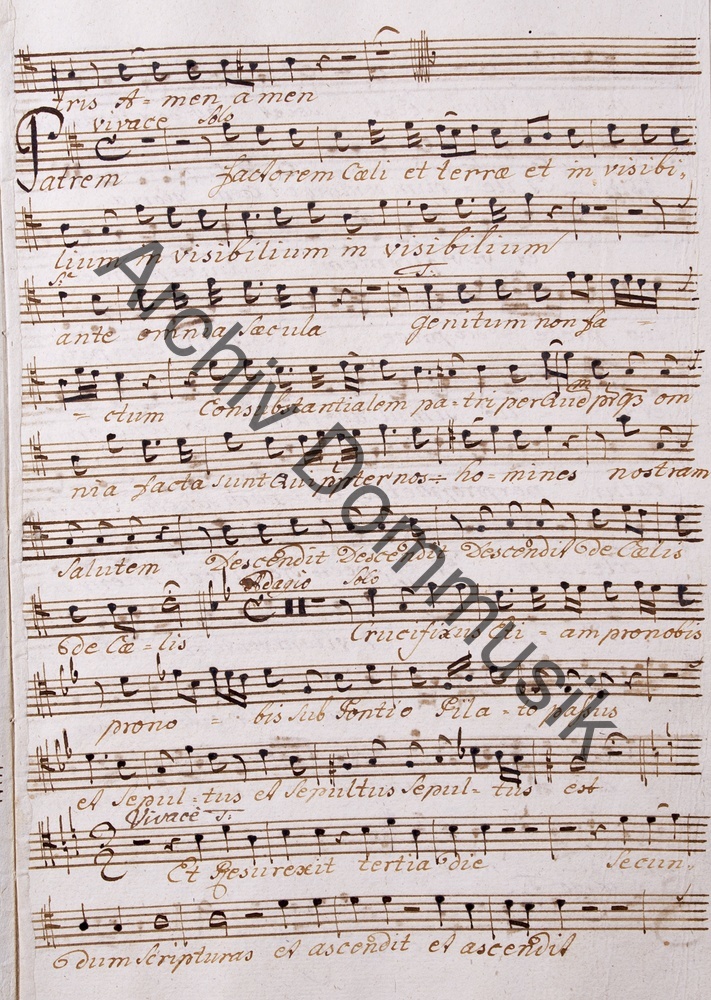 tris A-men amen
vivace Solo
Patrem factorem Cœli et terræ et in visibi,
lium in visibilium in visibilium
ante omnia Sæcula genitum non fa
= ctum Consubstantialem pa-tri per Quē om
nia facta sunt Qui nos = ho-mines nostram
Salutem Descendit Descendit Descendit de Cœlis
Adagio Solo
de Cæ-lis Crucifixus Eti-am pronobis
prono = bis sub Pontio Pila-to passus
et Sepul-tus et Sepultus Sepul-tus est
Vivace S:
Et Resurexit tertia die Secun,
dum Scripturas et ascendit et ascendit
Archiv Dommusik